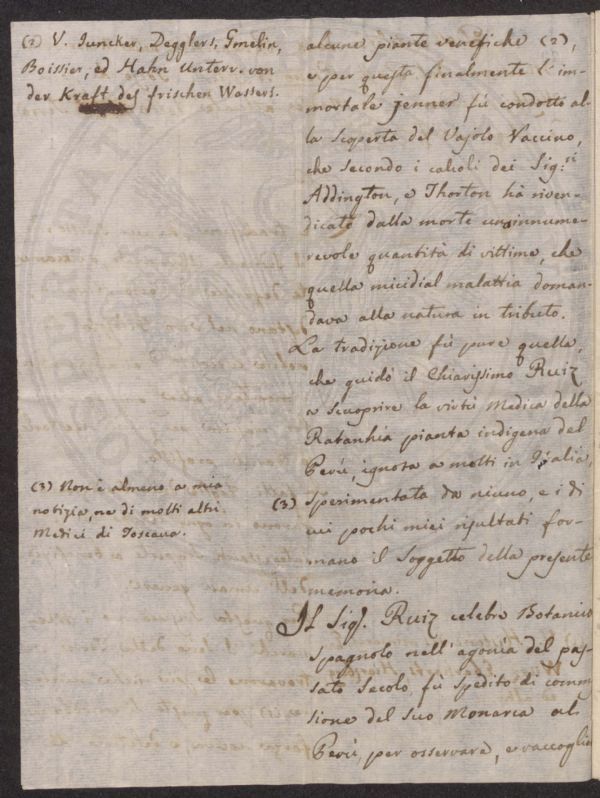 (2) V. Juncker, Degglers, Gmelin,
Boissier, ed Hahn Unterr. von
der Kraft des frischen Wassers.
(3) Non è almeno a mia
notizia, ne di molti altri
Medici di Toscana.
alcune piante venefiche (2),
e per questa finalmente l'im-
mortale Jenner fù condotto al-
la scoperta del Vajolo Vaccino,
che secondo i calcoli dei Sig:ri
Addington, e Thorton hà riven-
dicato dalla morte un'innume-
revole quantità di vittime, che
quella micidial malattia doman-
dava alla natura in tributo.
La tradizione fù pure quella,
che guidò il Chiarissimo Ruiz
a scuoprire la virtù Medica della
Ratanhia pianta indigena del
Perù, ignota a molti in Italia,
(3) sperimentata da niuno, e i di
cui pochi miei risultati for-
mano il soggetto della presente
memoria.
Il Sig. Ruiz celebre Botanico
Spagnolo nell'agonia del pas-
sato Secolo, fù spedito di commis-
sione del suo Monarca al
Perù, per osservare, e raccoglier